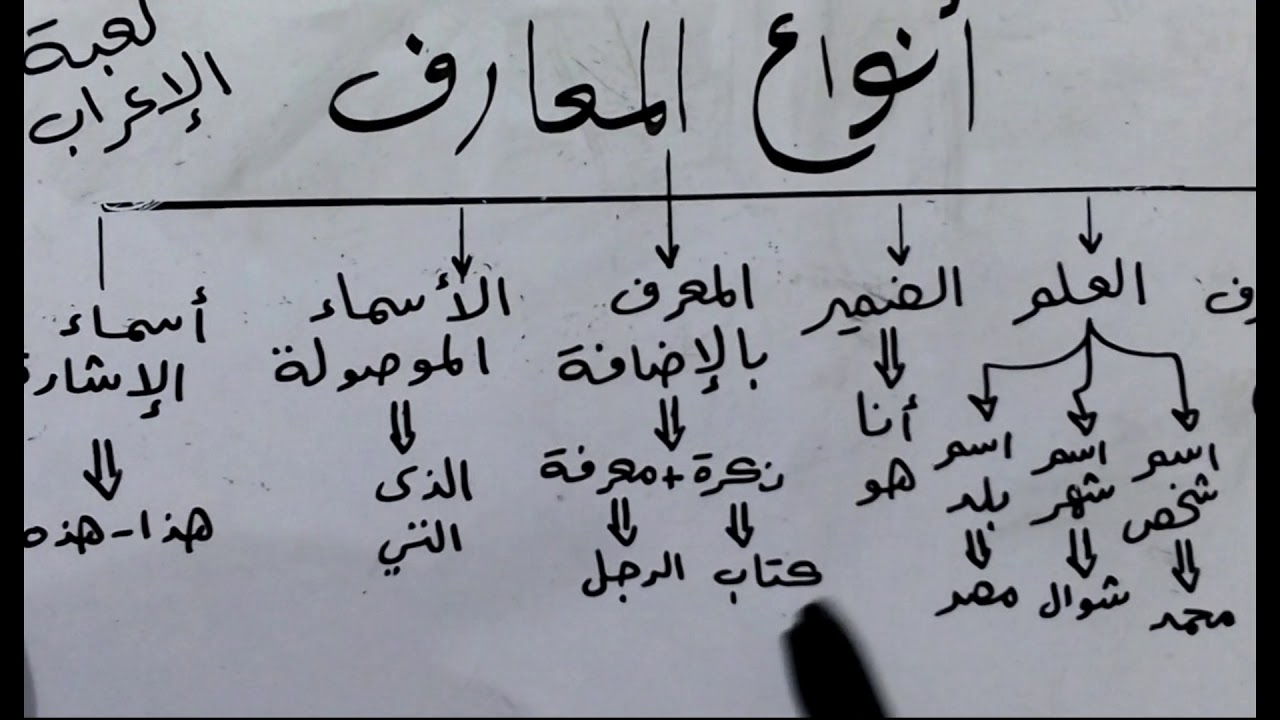 لعبة
الإعراب
أنواع المعارف
العلم
اسم شخص
محمد
اسم شهر
شوال
اسم بلد
مصر
الضمير
أنا
هو
المعرف
بالإضافة
نكرة + معرفة
كتاب الرجل
الأسماء
الموصولة
الذى
التي
أسماء
الإشارة
هذا - هذه